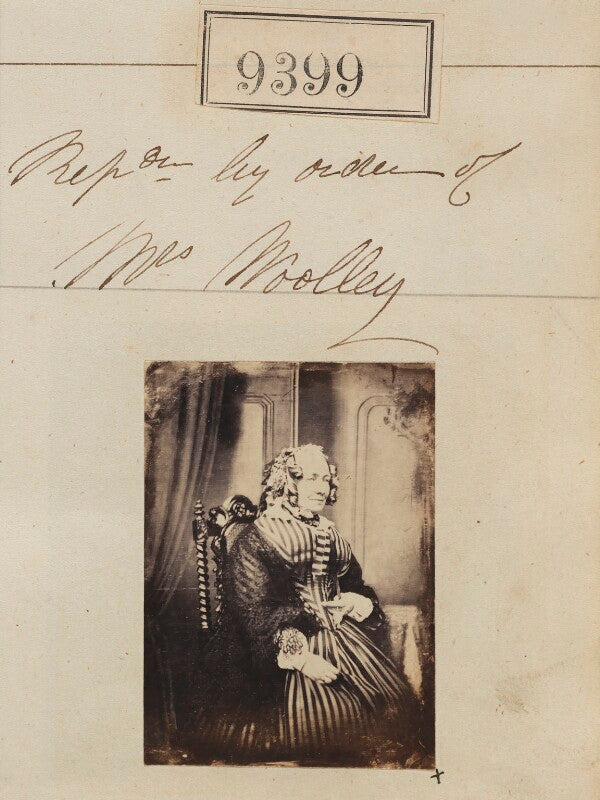 9399
Repᵒⁿ by order of
Mrs Woolley
x